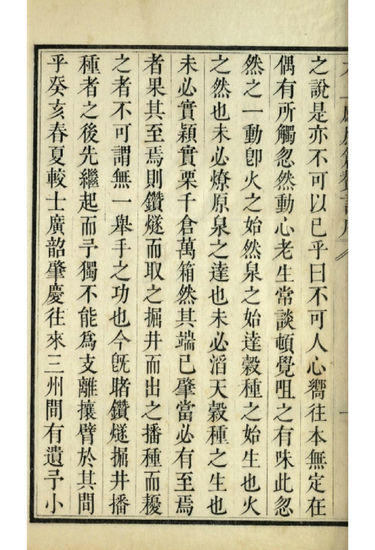 之說是亦不可以已乎曰不可人心嚮往本無定在
偶有所觸忽然動心老生常談頓覺咀之有味此忽
然之一動卽火之始然泉之始達穀種之始生也火
之然也未必燎原泉之達也未必滔天穀種之生也
未必實穎實栗千倉萬箱然其端已肇當必有至焉
者果其至焉則鑽燧而取之掘井而出之播種而耰
之者不可謂無一舉手之功也今旣賭鑽燧掘井播
種者之後先繼起而予獨不能爲支離攘臂於其間
乎癸亥春夏較士廣韶肇慶往來三州間有遺予小